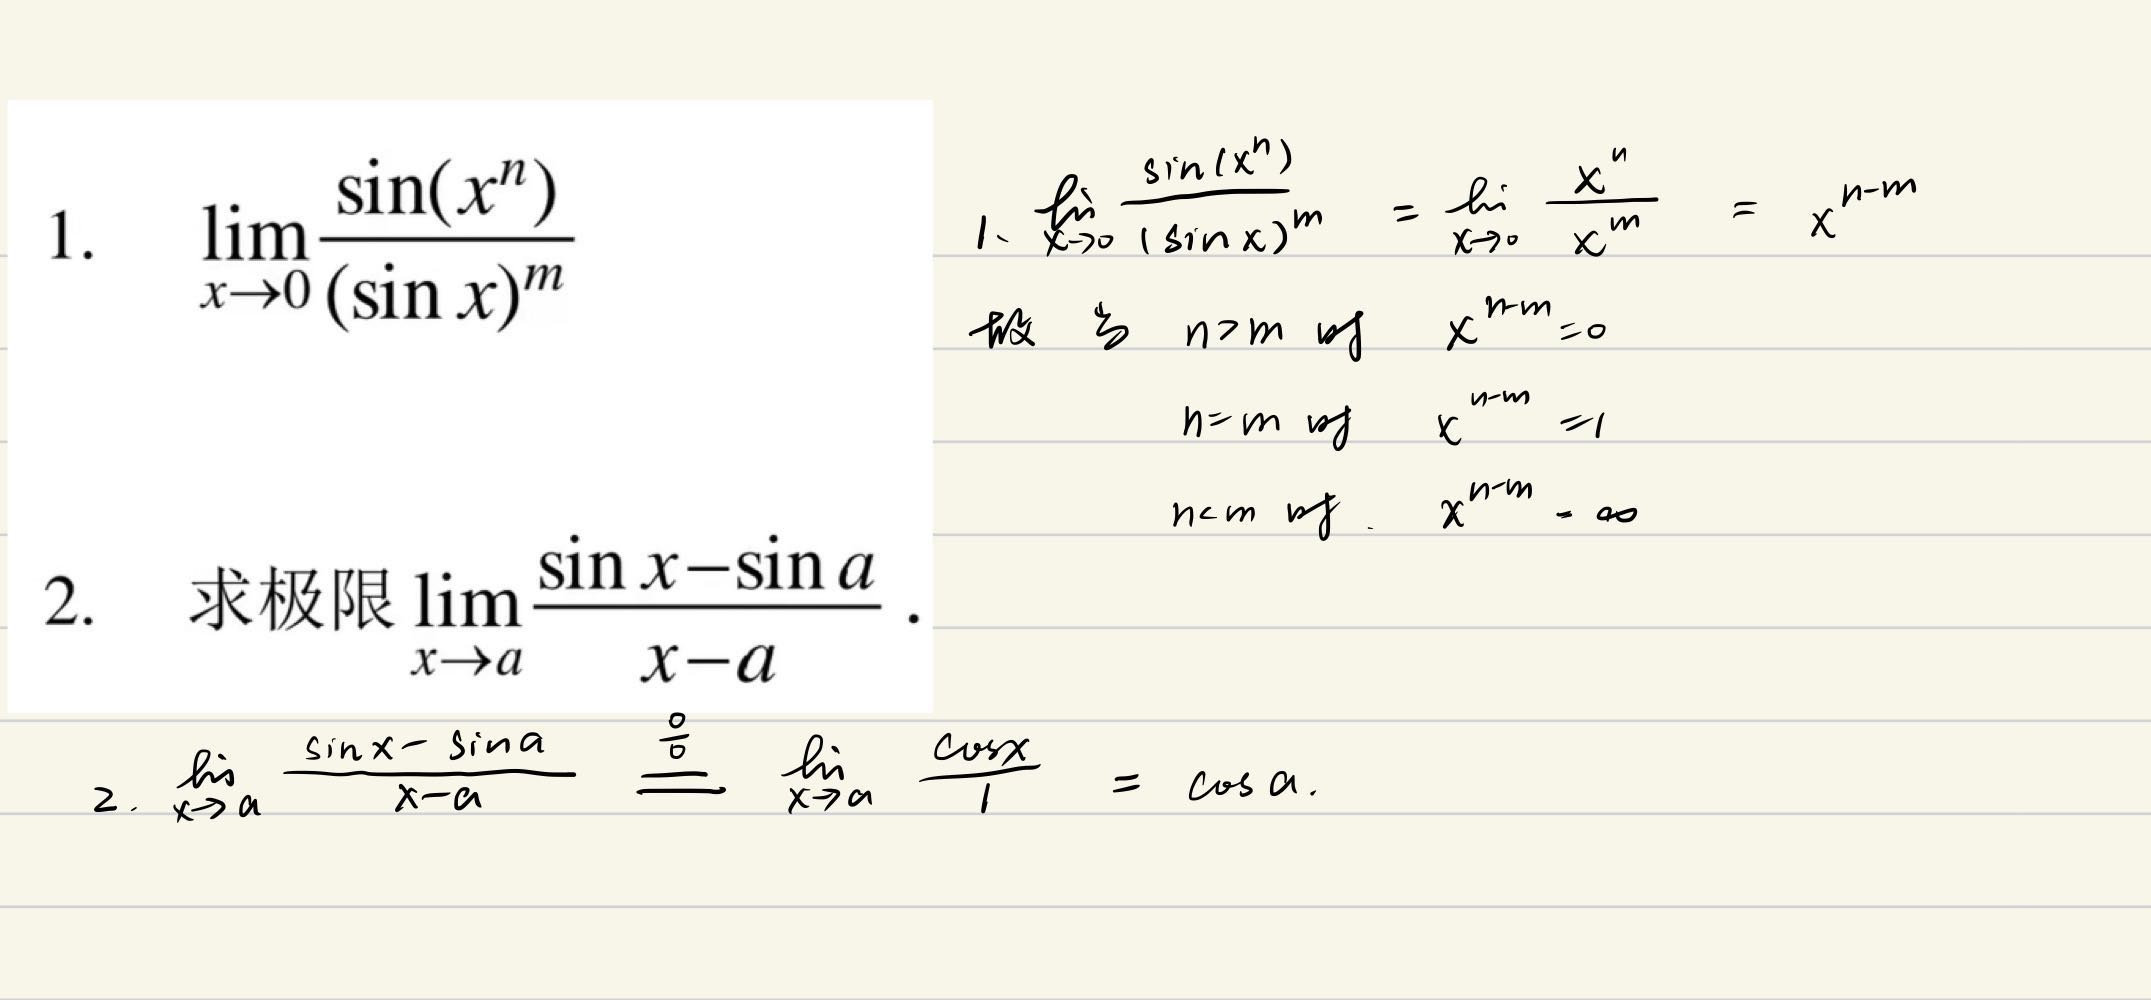 1. lim x→0 sin(xⁿ)/(sin x)ᵐ
2. 求极限 lim x→a (sin x−sin a)/(x−a) .
1、 lim x→0 sin(xⁿ)/(sin x)ᵐ = lim x→0 xⁿ/xᵐ = xⁿ⁻ᵐ
故 当 n>m 时 xⁿ⁻ᵐ=0
n=m 时 xⁿ⁻ᵐ=1
n<m 时. xⁿ⁻ᵐ=∞
2. lim x→a (sinx−sina)/(x−a) =(0/0)= lim x→a cosx/1 = cos a.